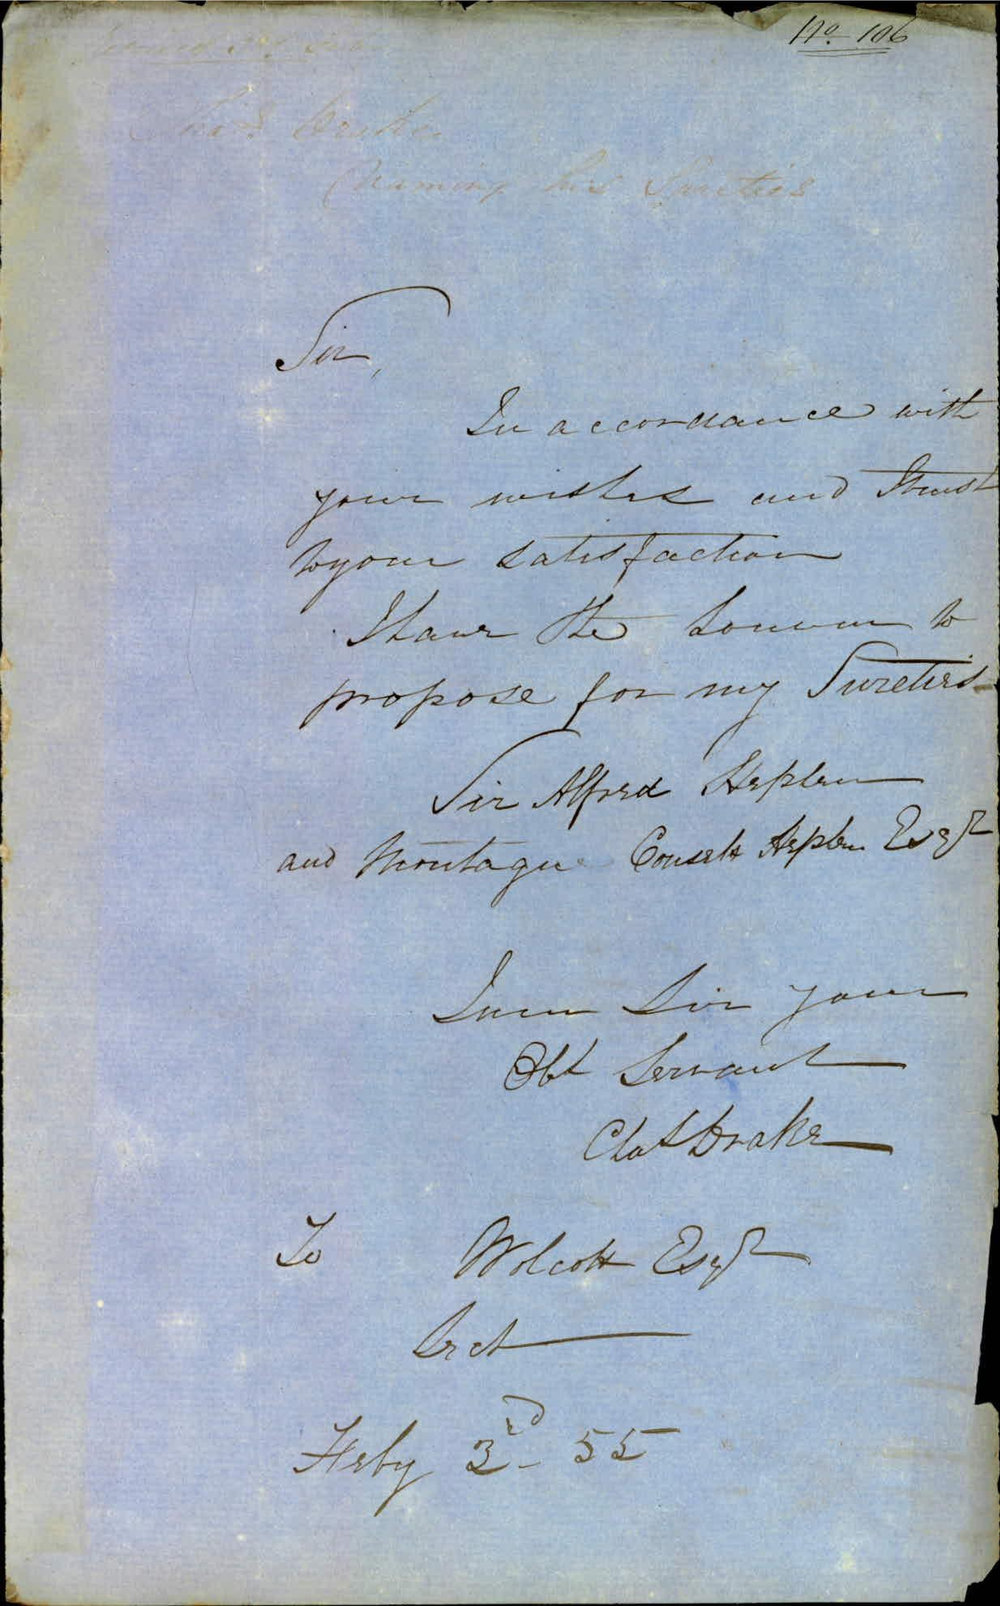 No. 106
Chas Drake
Naming his Sureties
Sir,
In accordance with
your wishes and I trust
to your satisfaction
I have the honour to
propose for my Sureties
Sir Alfred Stephen
and Montague Consett Stephen Esqr
I am Sir your
Obt Servant
Chas Drake
To Wolcott Esqr
Sect
Feby 3rd 55